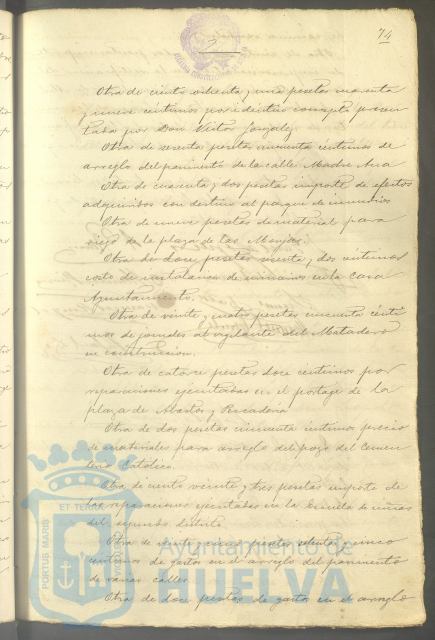 74
Otra de ciento ochenta y una pesetas noventa
y nueve céntimos por idéntico concepto presen
tada por Don Victor
Otra de sesenta pesetas cincuenta céntimos de
arreglo del pavimento de la calle Madre Ana
Otra de cuarenta y dos pesetas importe de efectos
adquiridos con destino al parque de incendios
Otra de nueve pesetas de material para
riego de la plaza de las Monjas
Otra de doce pesetas veinte y dos céntimos
costo de instalacion de en la Casa
Ayuntamiento.
Otra de veinte y cuatro pesetas cincuenta cénti
mos de jornales al vigilante del Matadero
en construccion.
Otra de catorce pesetas doce centimos por
reparaciones ejecutadas en el portage de la
plaza de Abastos y Pescaderia
Otra de dos pesetas cincuenta céntimos precio
de materiales para arreglo del pozo del Cemen
terio Católico.
Otra de ciento veinte y tres pesetas importe de
las reparaciones ejecutadas en la Escuela de niñas
del segundo distrito
Otra de veinte y cinco pesetas ochenta y cinco
centimos de gastos en el arreglo del pavimento
de varias calles
Otra de doce pesetas de gastos en el arreglo
PORTUS MARIS
ET TERRÆ
Ayuntamiento de
HUELVA